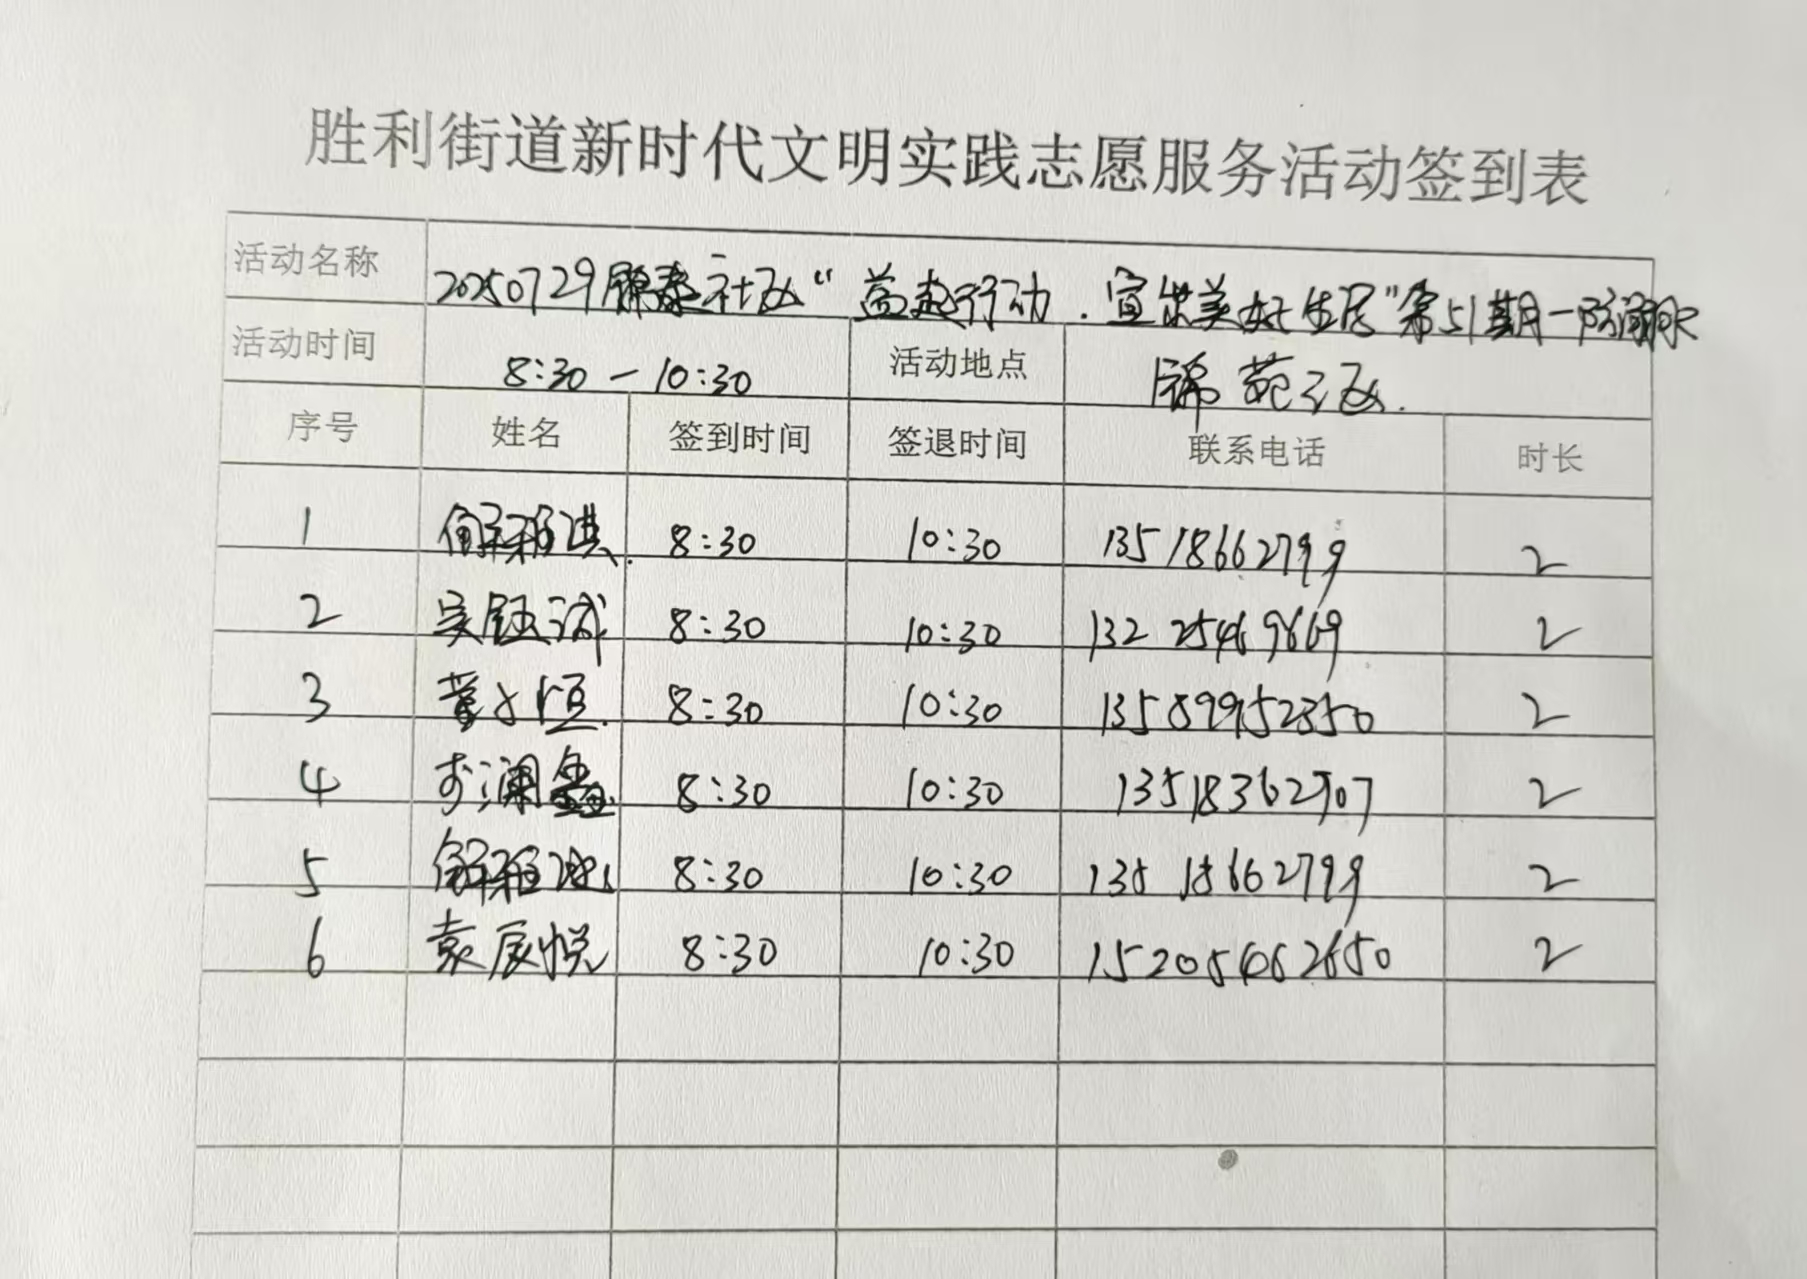 胜利街道新时代文明实践志愿服务活动签到表
活动名称 20250729锦泰社区“益起行动.宜集美好生活”第51期一防溺水
活动时间 8:30-10:30 活动地点 锦苑社区.
序号 姓名 签到时间 签退时间 联系电话 时长
1 解雅淇 8:30 10:30 13518662799 2
2 吴钰诚 8:30 10:30 13225469669 2
3 董恒 8:30 10:30 13589952350 2
4 李润鑫 8:30 10:30 13518362907 2
5 解雅 8:30 10:30 13518662799 2
6 袁辰悦 8:30 10:30 15205462650 2